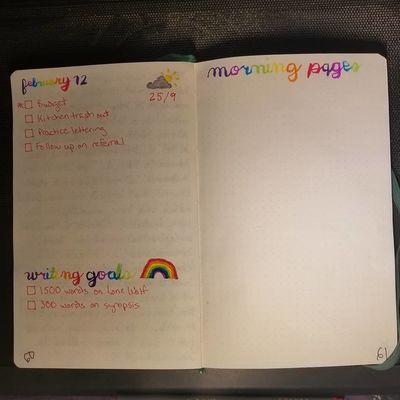 february 12
25/9
* Budget
Kitchen trash out
Practice lettering
Follow up on referral
writing goals
1500 words on Lone Wolf
300 words on synopsis
60
morning pages
61